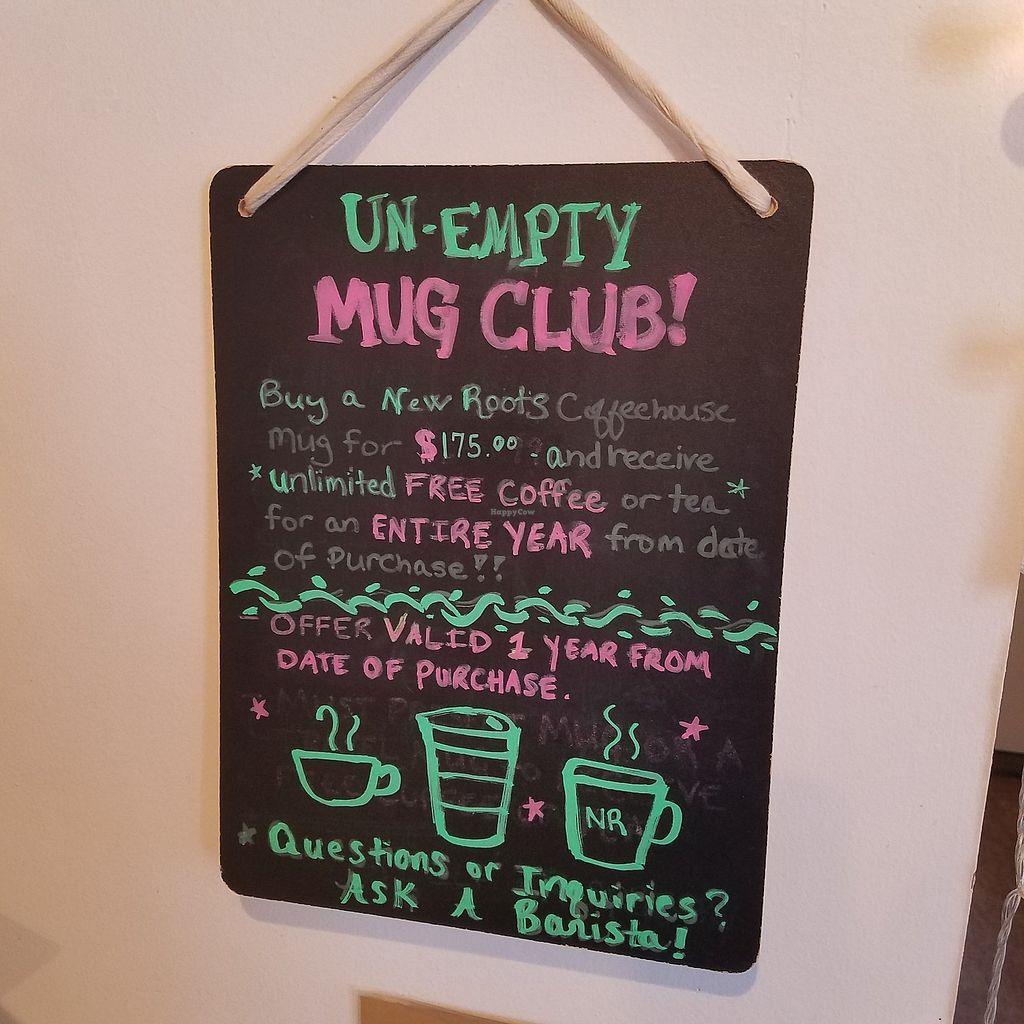 UN-EMPTY
MUG CLUB!
Buy a New Roots Coffeehouse
mug for $175.00 - and receive
*unlimited FREE Coffee or tea*
HappyCow
for an ENTIRE YEAR from date
of Purchase!!
- OFFER VALID 1 YEAR FROM
DATE OF PURCHASE.
NR
* Questions or Inquiries?
ASK A Barista!